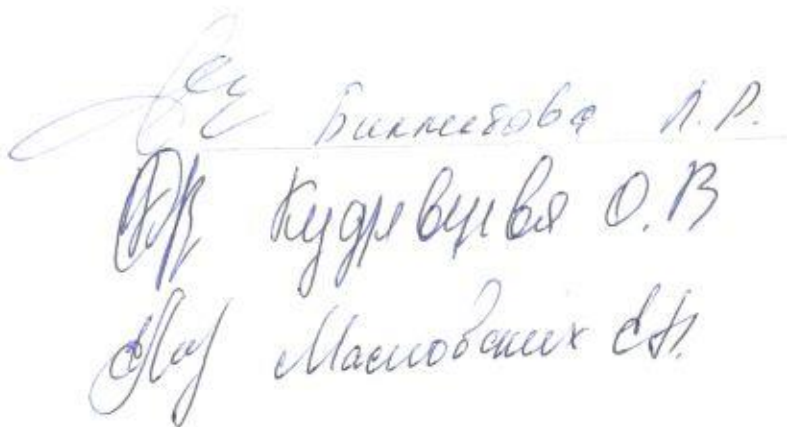 Бикметова Л.Р.
Кудрявцева О.В
Масловских Е.А.